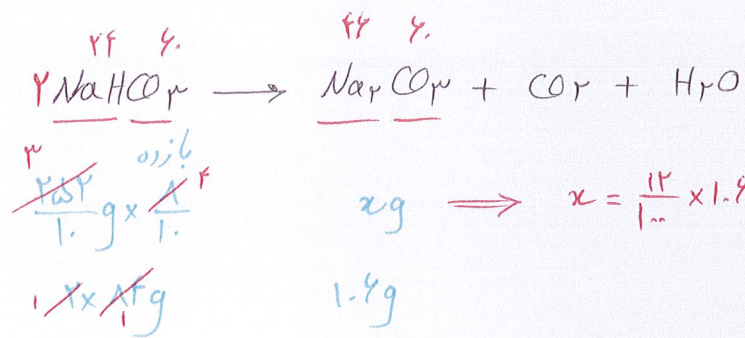 ۲۴ ۶۰ ۴۶ ۶۰
۲NaHCO۳ → Na۲CO۳ + CO۲ + H۲O
۳ بازده ۴
۲۵۲/۱۰ g × ۸/۱۰ xg ⟹ x = ۱۲/۱۰۰ × ۱۰۶
۱ ۲ × ۸۴g ۱ ۱۰۶g